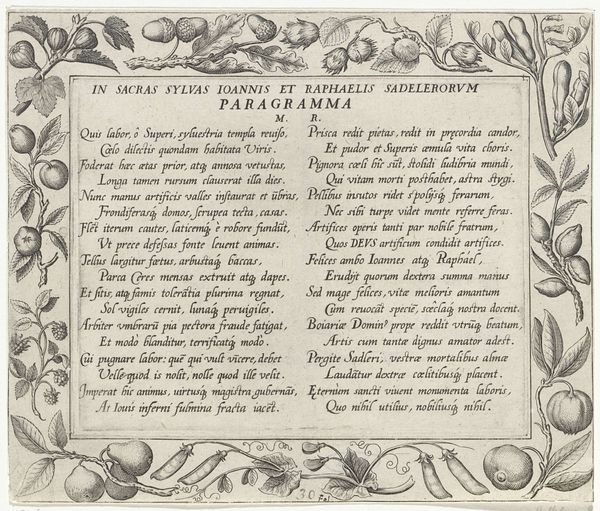 IN SACRAS SYLVAS IOANNIS ET RAPHAELIS SADELERORVM
PARAGRAMMA
M. R.
Quis labor, ô Superi, syluestria templa reuiso,
Cœlo dilectis quondam habitata Viris.
Foderat hæc ætas prior, atq annosa vetustas,
Longa tamen rursum clauserat illa dies.
Nunc manus artificis valles instaurat et ūbras,
Frondiferasq domos, scrupea tecta, casas.
Flēt iterum cautes, laticemq è robore fundūt,
Vt prece defessas fonte leuent animas.
Tellus largitur fœtus, arbustaq baccas,
Parca Ceres mensas extruit atq dapes.
Et sitis, atq famis tolerātia plurima regnat,
Sol vigiles cernit, lunaq peruigiles.
Arbiter vmbrarū pia pectora fraude fatigat,
Et modò blanditur, terrificatq modò.
Cūi pugnare labor: quē qui vult vīcere, debet
Velle quod is nolit, nolle quod ille velit.
Imperat hìc animus, uirtusq magistra gubernās,
At Iouis inferni fulmina fracta iacēt.
Prisca redit pietas, redit in pręcordia candor,
Et pudor et Superis æmula vita choris.
Pignora cœli hìc sūt, stolidi ludibria mundi,
Qui vitam morti posthabet, astra Stygi.
Pellibus insutos ridet spolijsq ferarum,
Nec sibi turpe videt mente referre feras.
Artifices operis tanti par nobile fratrum,
Quos DEVS artificum condidit artifices.
Felices ambo Ioannes atq Raphaël,
Erudijt quorum dextera summa manus
Sed mage felices, vitæ melioris amantum
Cùm reuocāt speciē, sœclaq nostra docent.
Boiariæ Domin9 prope reddit vtrūq beatum,
Artis cum tantæ dignus amator adest.
Pergite Sadleri, vestræ mortalibus almæ
Laudātur dextræ cœlitibusq placent.
Eternùm sancti viuent monumenta laboris,
Quo nihil utilius, nobiliusq nihil.
30